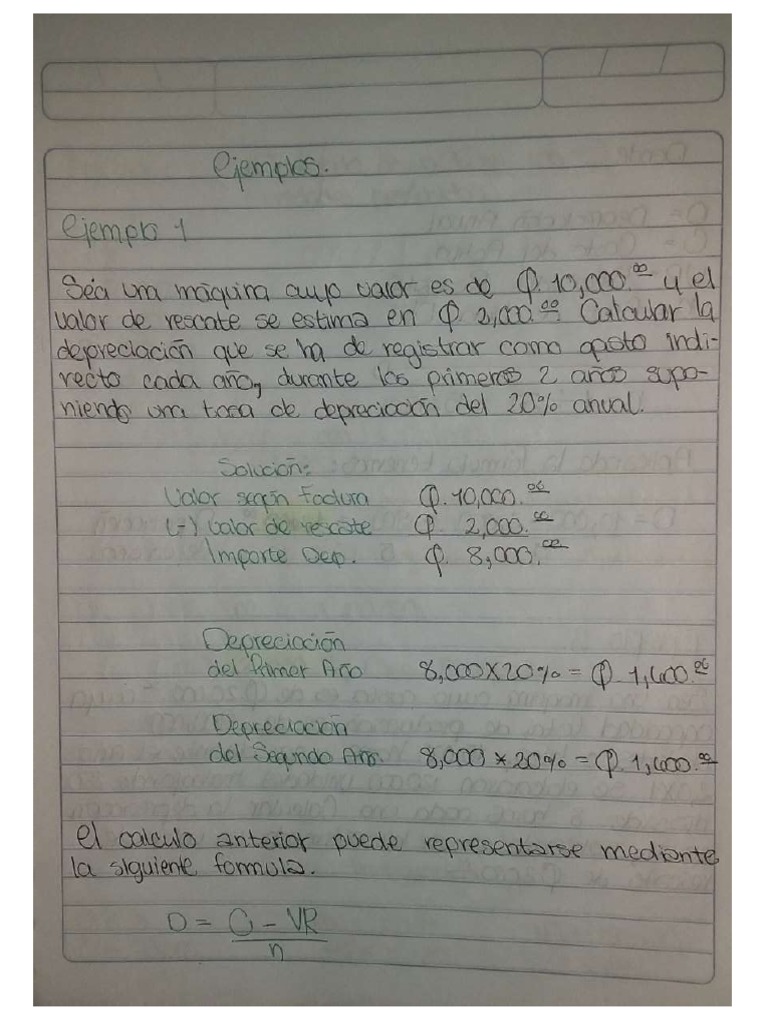 Ejemplos.
Ejemplo 1
Séa una máquina cuyo valor es de Q. 10,000.00 y el
valor de rescate se estima en Q. 2,000.00 Calcular la
depreciación que se ha de registrar como gasto indi-
recto cada año, durante los primeros 2 años supo-
niendo una tasa de depreciación del 20% anual.
Solución:
Valor según factura Q. 10,000.00
(-) Valor de rescate Q. 2,000.00
Importe Dep. Q. 8,000.00
Depreciación
del Primer Año 8,000 X 20% = Q. 1,600.00
Depreciación
del Segundo Año. 8,000 * 20% = Q. 1,600.00
El calculo anterior puede representarse mediante
la siguiente formula.
D = C - VR
n